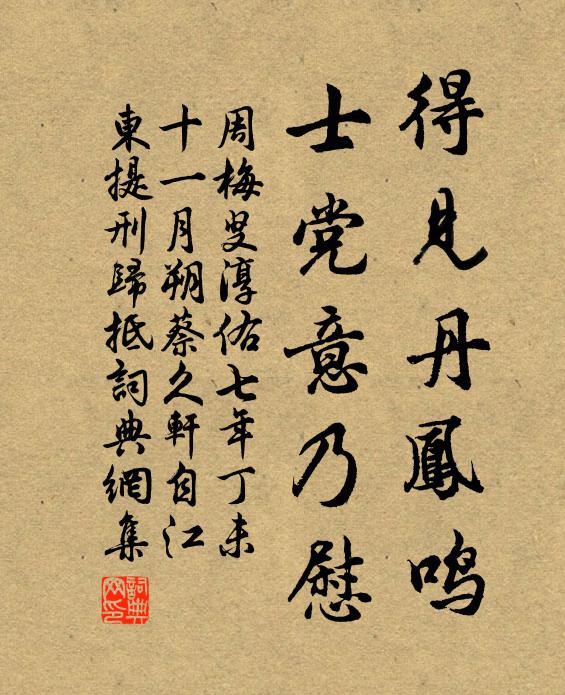 得見丹鳳鳴
士党意乃慰
周梅叟淳佑七年丁未
十一月朔蔡久軒自江
東提刑歸抵詞典網集
詞典
网印